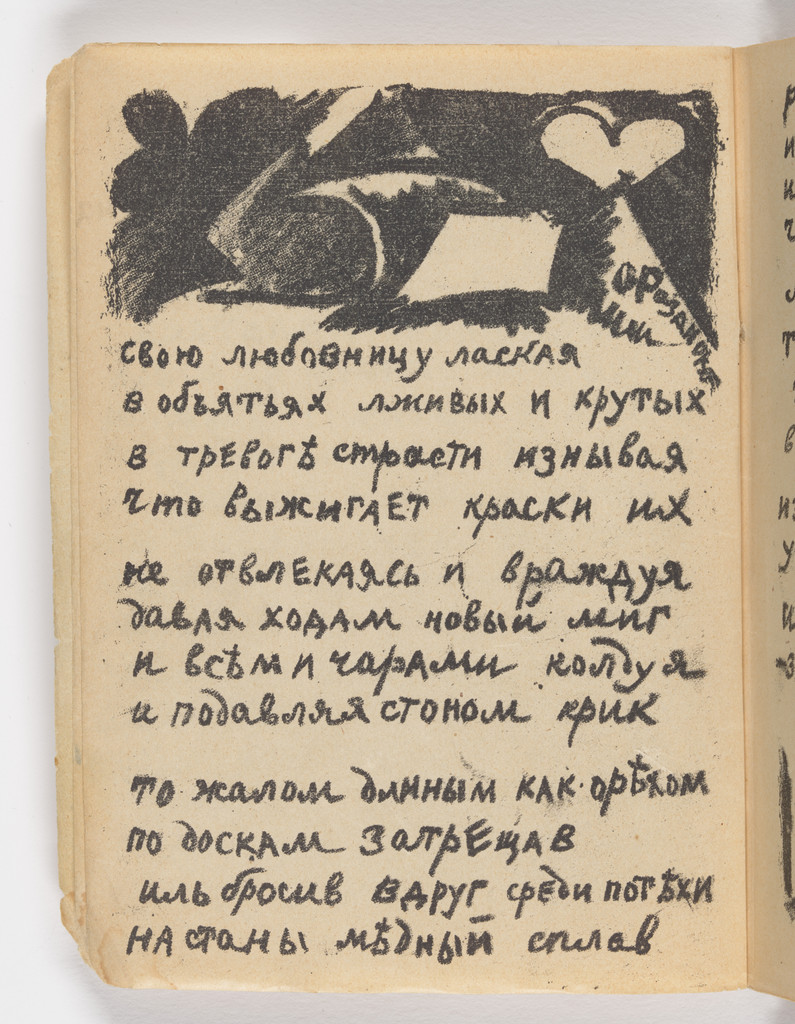 свою любовницу лаская
в объятьях лживых и крутых
в тревогѣ страсти изнывая
что выжигает краски их
не отвлекаясь и враждуя
давая ходам новый миг
и всѣми чарами колдуя
и подавляя стоном крик
то жалом длиным как орѣхом
по доскам затрещав
иль бросив вдруг среди потѣхи
на станы мѣдный сплав